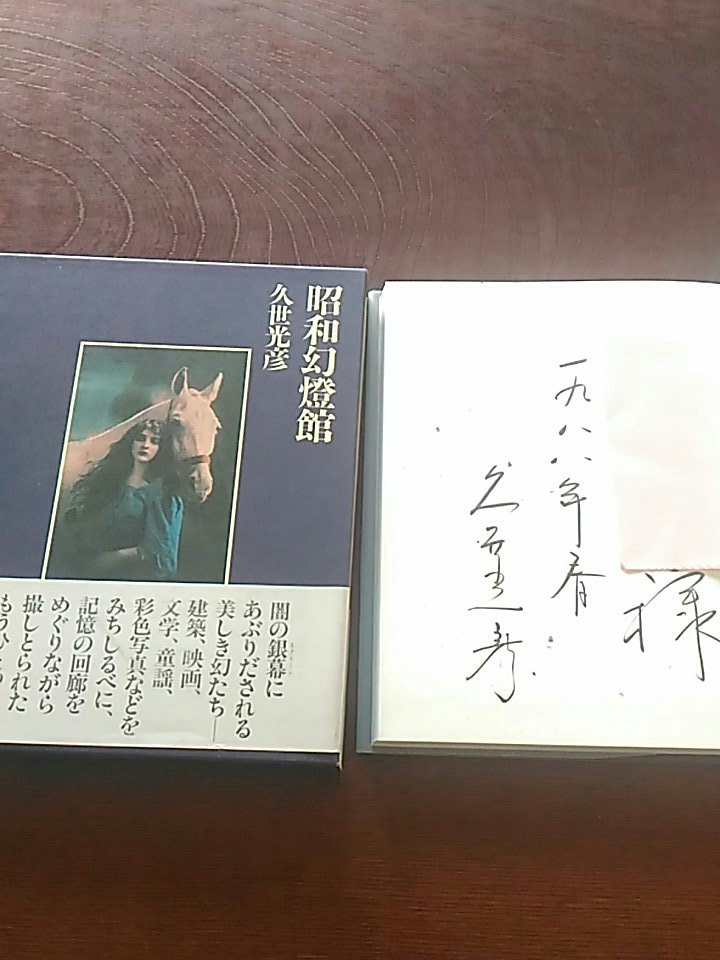 昭和幻燈館
久世光彦
闇の銀幕に
あぶりだされる
美しき幻たち――
建築、映画、
文学、童謡、
彩色写真などを
みちしるべに、
記憶の回廊を
めぐりながら
撮しとられた
もうひとつ
様
一九八八年春
久世光彦